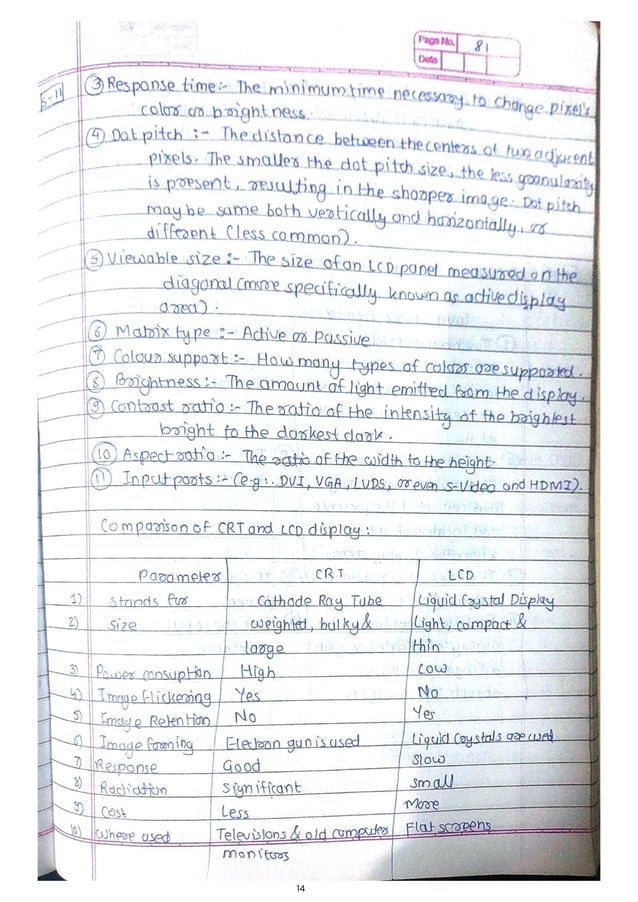 Page No. 81
Date
S-11
③ Response time:- The minimum time necessary to change pixel's
color or brightness.
④ Dot pitch :- The distance between the centers of two adjacent
pixels. The smaller the dot pitch size, the less granularity
is present, resulting in the sharper image. Dot pitch
may be same both vertically and horizontally, or
different (less common).
⑤ Viewable size :- The size of an LCD panel measured on the
diagonal (more specifically known as active display
area).
⑥ Matrix type :- Active or Passive
⑦ Colour support :- How many types of colors are supported.
⑧ Brightness :- The amount of light emitted from the display.
⑨ Contrast ratio :- The ratio of the intensity of the brightest
bright to the darkest dark.
⑩ Aspect ratio :- The ratio of the width to the height.
⑪ Input ports :- (e.g:. DVI, VGA, LVDS, or even S-Video and HDMI).
Comparison of CRT and LCD display :
Parameter CRT LCD
1) Stands for Cathode Ray Tube Liquid Crystal Display
2) Size weighted, bulky & Light, compact &
large thin
3) Power consuption High Low
4) Image flickering Yes No
5) Image Retention No Yes
6) Image forming Electron gun is used Liquid Crystals are used
7) Response Good Slow
8) Radiation Significant Small
9) Cost Less More
10) Where used Televisions & old computer Flat screens
monitors
14